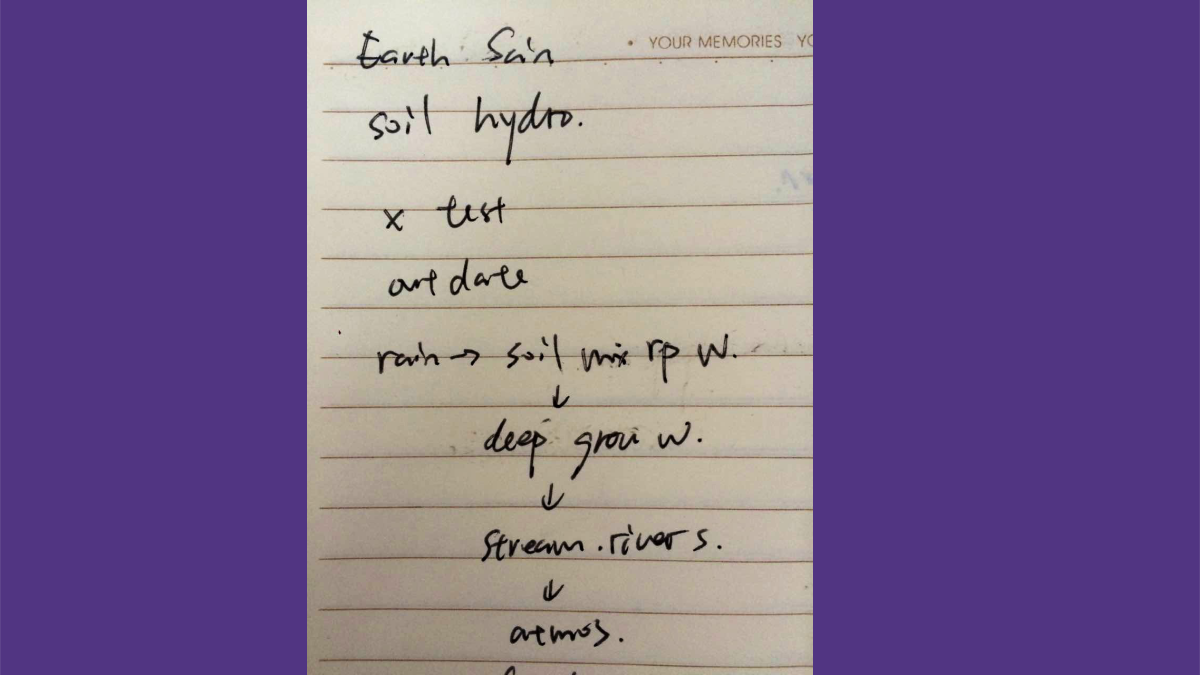 Earth Scin
• YOUR MEMORIES YO
soil hydro.
x test
out date
rain → soil mix rp w.
↓
deep grou w.
↓
stream . rivers.
↓
atmos.